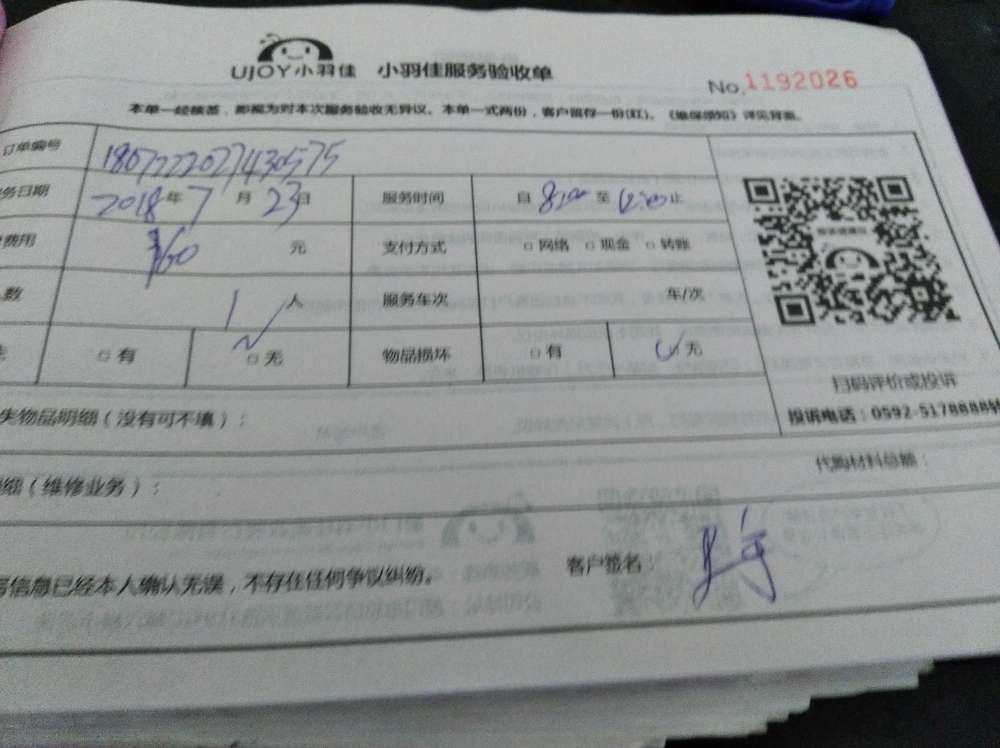 UJOY小羽佳 小羽佳服务验收单
No.1192026
本单一经签, 即视为对本次服务验收无异议。本单一式两份，客户留存一份(红)。《维保须知》详见背面。
订单编号 180722202743
务日期 2018年7月23日 服务时间 自8:00至12:00止
费用 160元 支付方式 □网络 □现金 □转账
人数 1人 服务车次 车/次
□有 □无 物品损坏 □有 □无
扫码评价或投诉
投诉电话：0592-5178888转
失物品明细（没有可不填）：
代购材料总额：
细（维修业务）：
写信息已经本人确认无误，不存在任何争议纠纷。 客户签名：